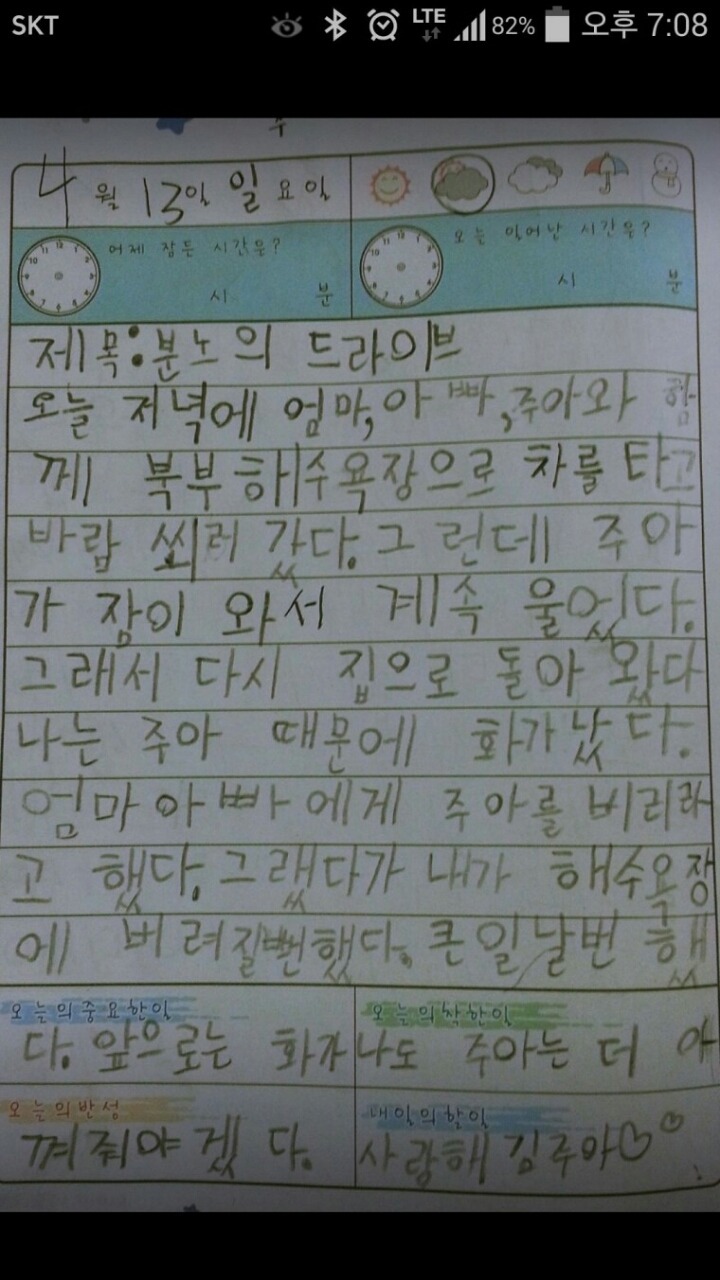 SKT LTE 82% 오후 7:08
4월 13일 일요일
어제 잠든 시간은? 오늘 일어난 시간은?
시 분 시 분
제목:분노의 드라이브
오늘 저녁에 엄마,아빠,주아와 함
께 북부해수욕장으로 차를 타고
바람 쐬러 갔다. 그런데 주아
가 잠이 와서 계속 울었다.
그래서 다시 집으로 돌아 왔다
나는 주아 때문에 화가 났다.
엄마 아빠에게 주아를 버리라
고 했다. 그랬다가 내가 해수욕장
에 버려질뻔했다. 큰일날번 했
오늘의중요한일 오늘의착한일
다. 앞으로는 화가나도 주아는 더 아
오늘의반성 내일의할일
껴줘야 겠다. 사랑해 김주아♡♡